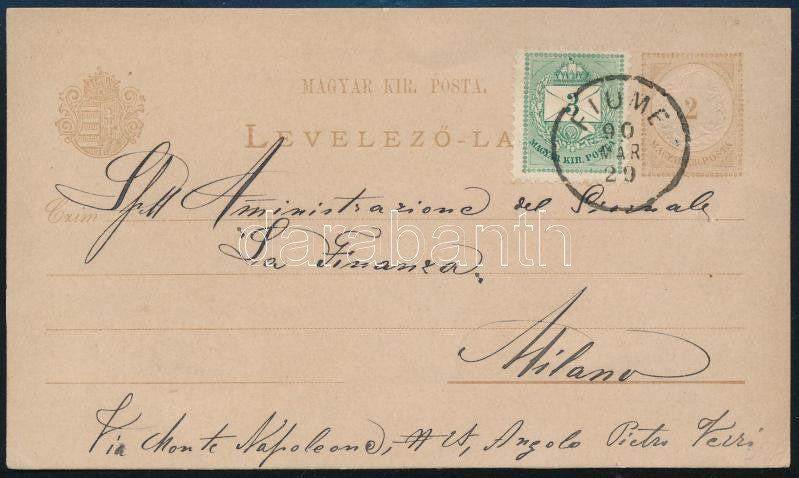 MAGYAR KIR. POSTA.
LEVELEZŐ-LA
3
MAGYAR KIR. POSTA
2
MAGYAR KIR. POSTA
FIUME
90
MAR
29
Czim
Spett Aministrazione del Giornale
La Finanza.
Milano
Via Monte Napoleone, Angolo Pietro Verri
darabanth